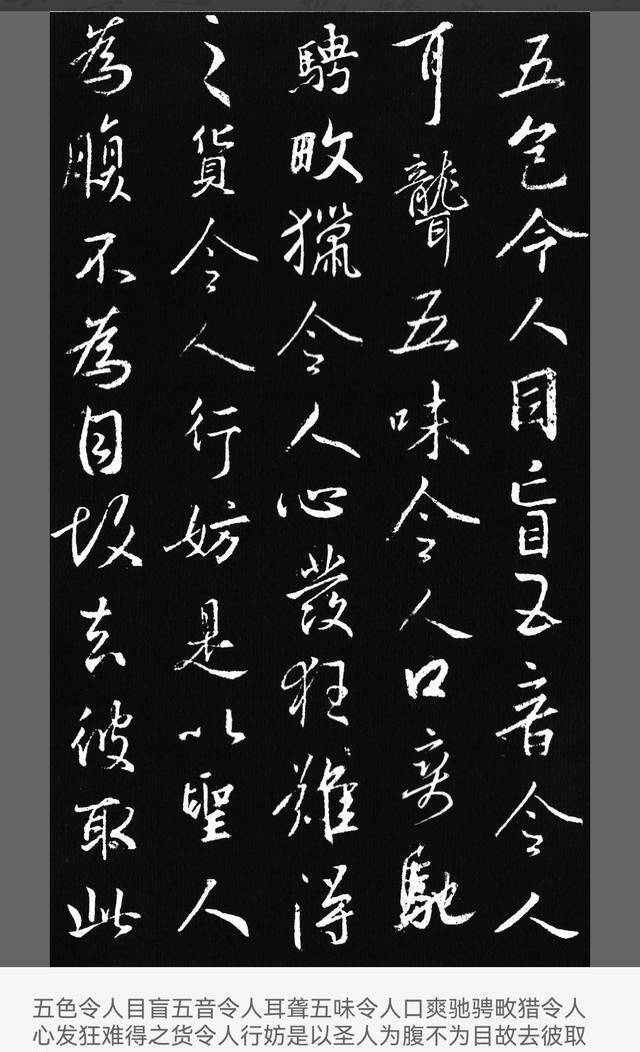 五色令人目盲五音令人
耳聾五味令人口爽馳
騁畋獵令人心發狂難得
之貨令人行妨是以聖人
為腹不為目故去彼取此
五色令人目盲五音令人耳聋五味令人口爽驰骋畋猎令人
心发狂难得之货令人行妨是以圣人为腹不为目故去彼取